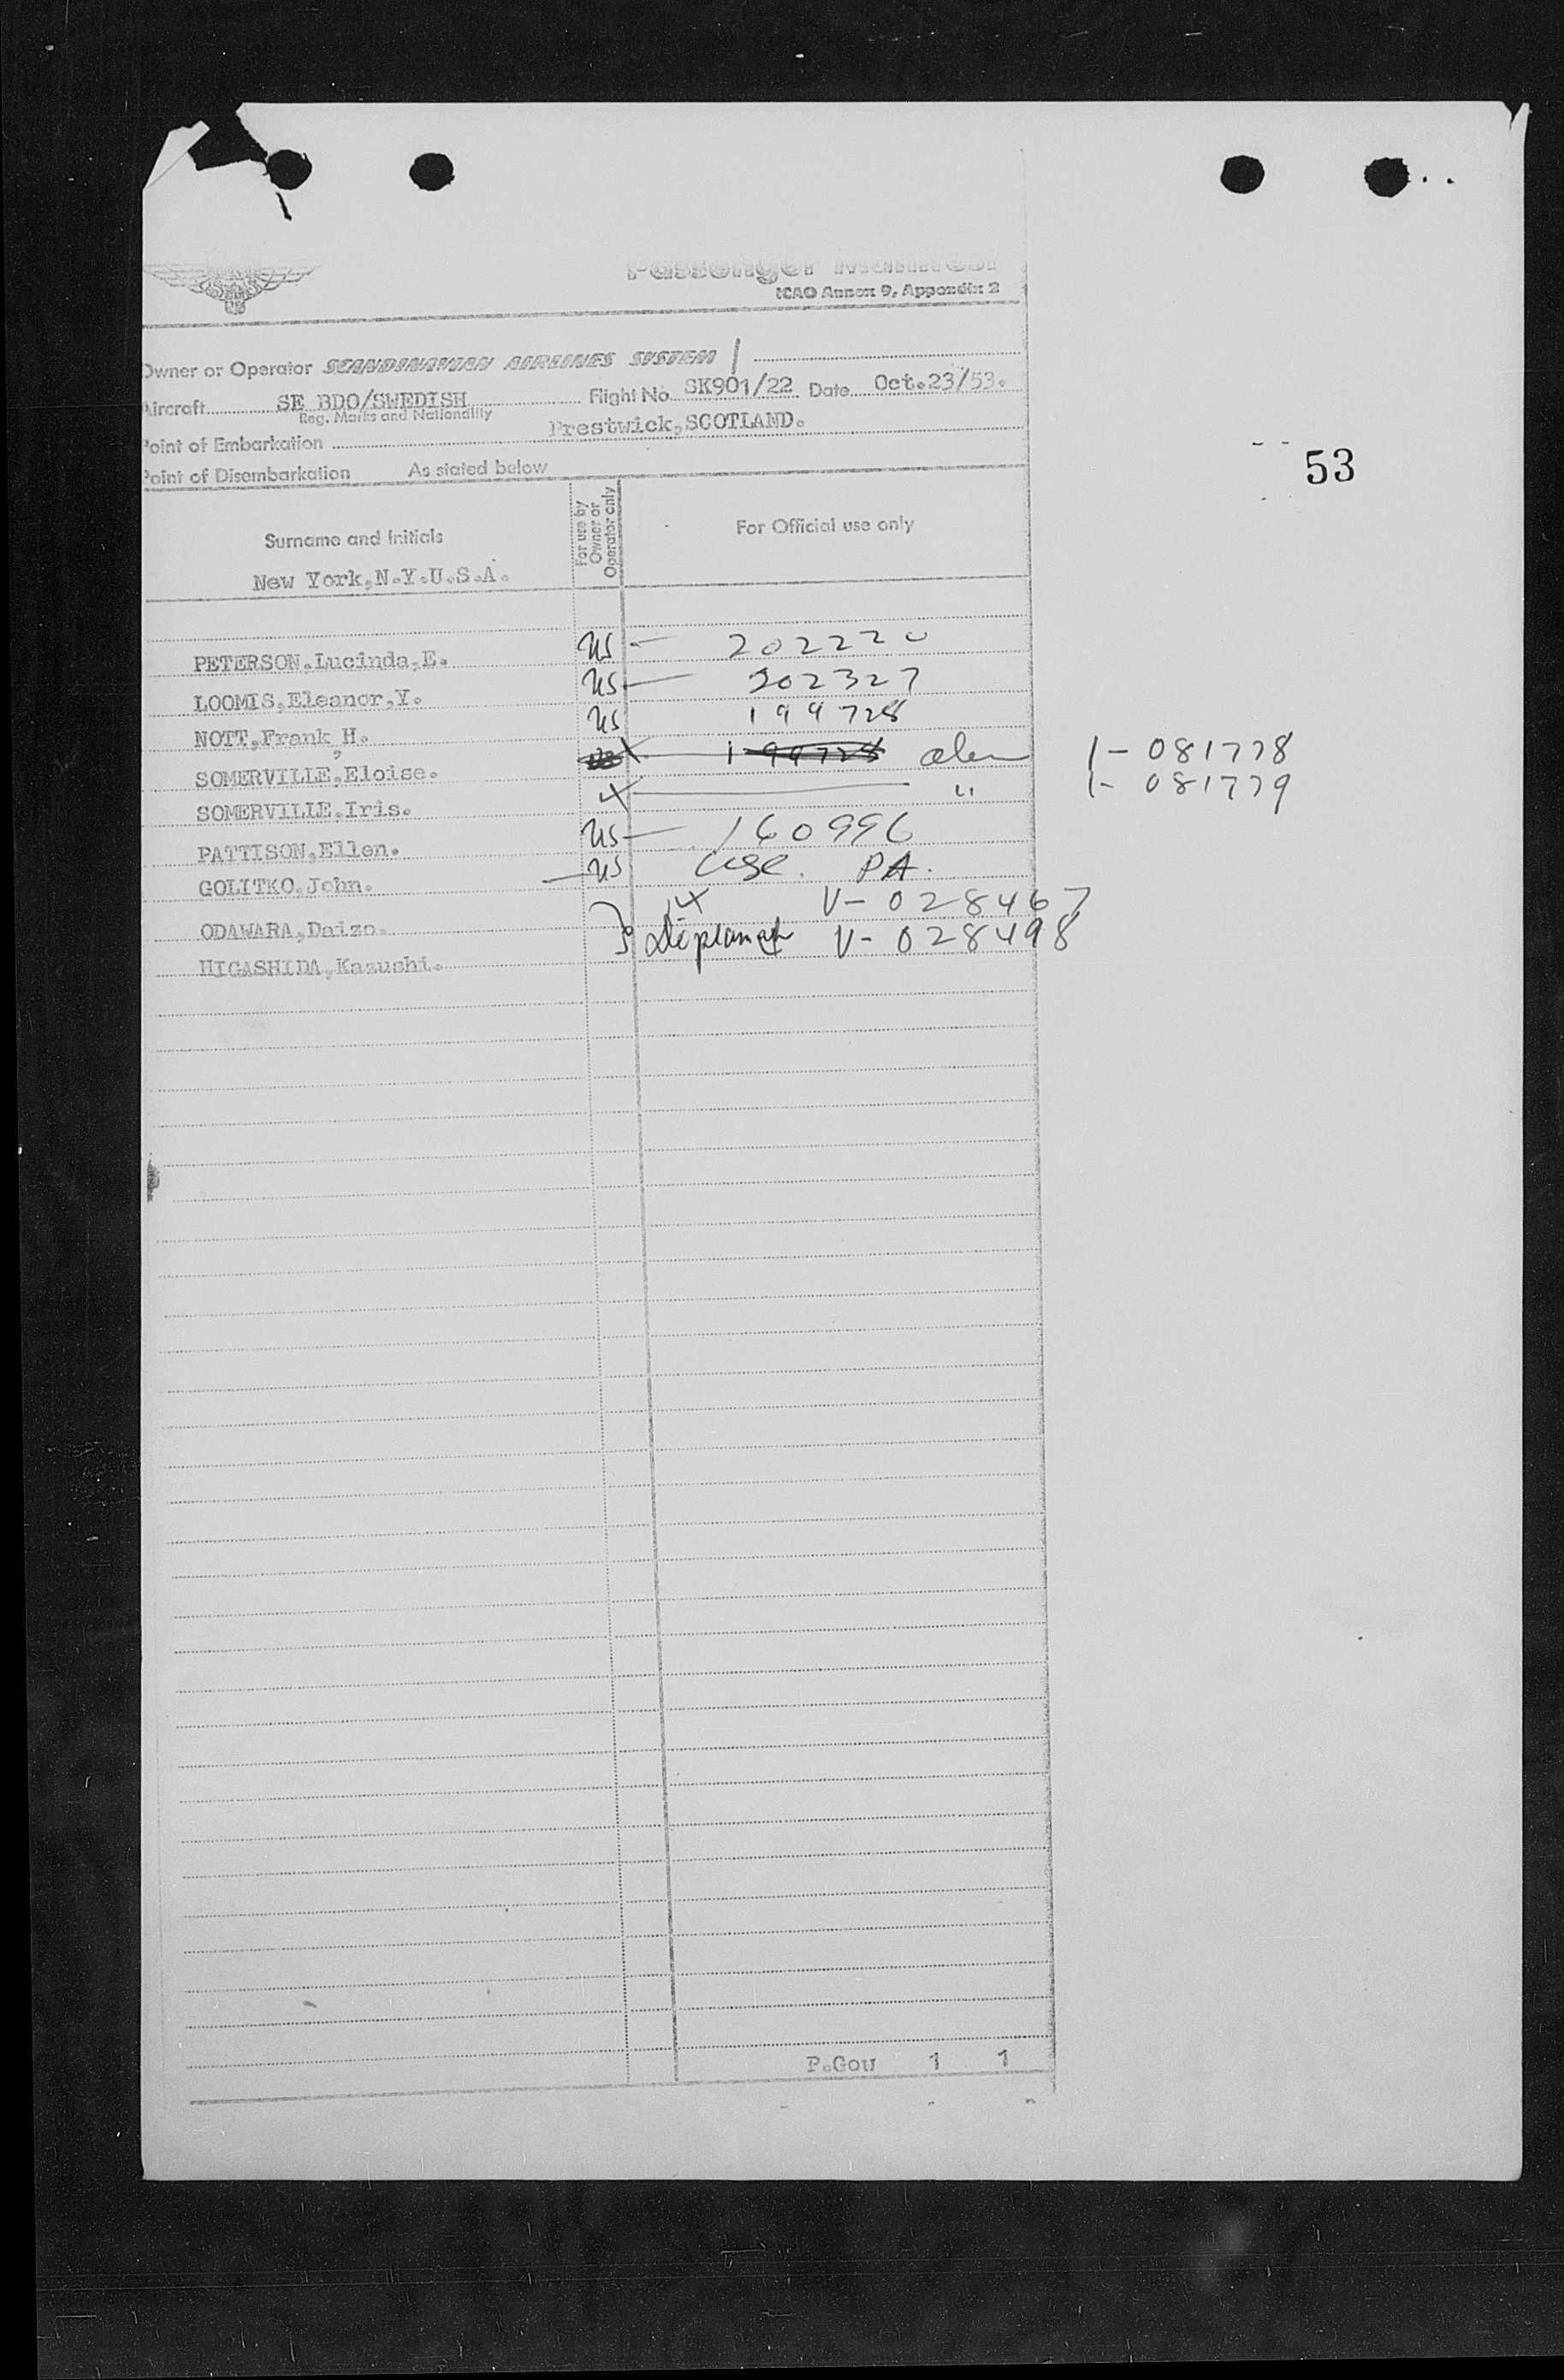 Passenger Manifest
ICAO Annex 9, Appendix 2
Owner or Operator SCANDINAVIAN AIRLINES SYSTEM
Aircraft SE BDO/SWEDISH Flight No. SK901/22 Date Oct.23/53.
Reg. Marks and Nationality
Point of Embarkation Prestwick,SCOTLAND.
Point of Disembarkation As stated below
53
Surname and Initials
For use by
Owner or
Operator only
For Official use only
New York,N.Y.U.S.A.
PETERSON,Lucinda,E. US - 202220
LOOMIS,Eleanor,Y. US - 202327
NOTT,Frank,H. US 199728
SOMERVILLE,Eloise. X 199728 alien 1-081778
SOMERVILLE,Iris. X " 1-081779
PATTISON,Ellen. US - 160996
GOLITKO,John. - US use. PA.
ODAWARA,Daizo. X V-028467
HIGASHIDA,Kazushi. V-028498
P.Gow 1 1